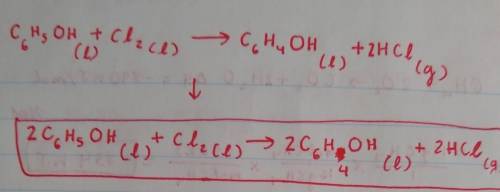 C₆H₅OH(l) + Cl₂(l) → C₆H₄OH(l) + 2HCl(g)
↓
2C₆H₅OH(l) + Cl₂(l) → 2C₆H₄OH(l) + 2HCl(g